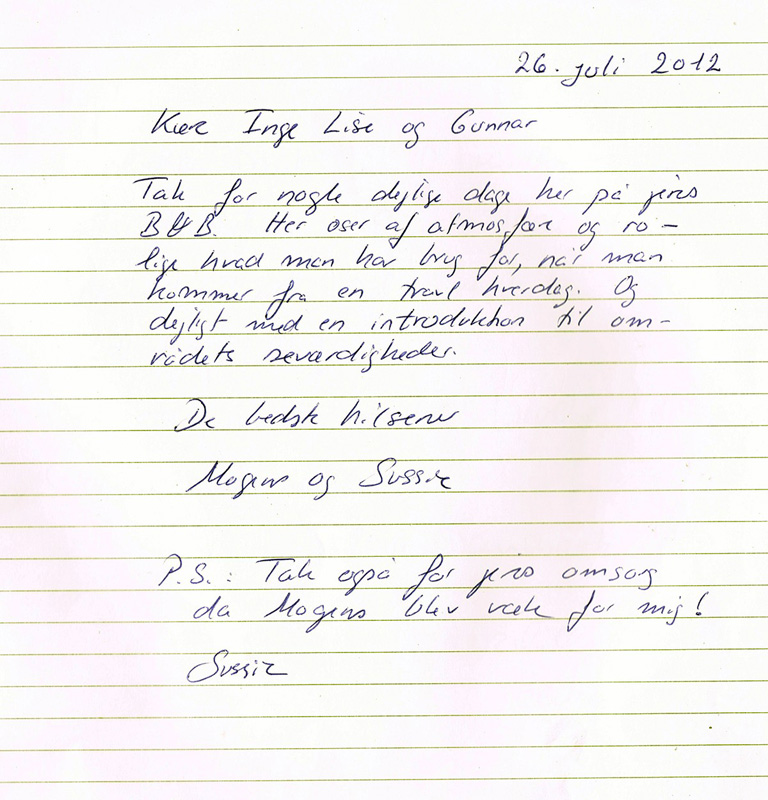 26. juli 2012
Kære Inge Lise og Gunnar
Tak for nogle dejlige dage her på jeres
B&B. Her oser af atmosfære og ro –
lige hvad man har brug for, når man
kommer fra en travl hverdag. Og
dejligt med en introduktion til om-
rådets seværdigheder.
De bedste hilsener
Mogens og Sussie
P.S.: Tak også for jeres omsorg
da Mogens blev væk for mig!
Sussie